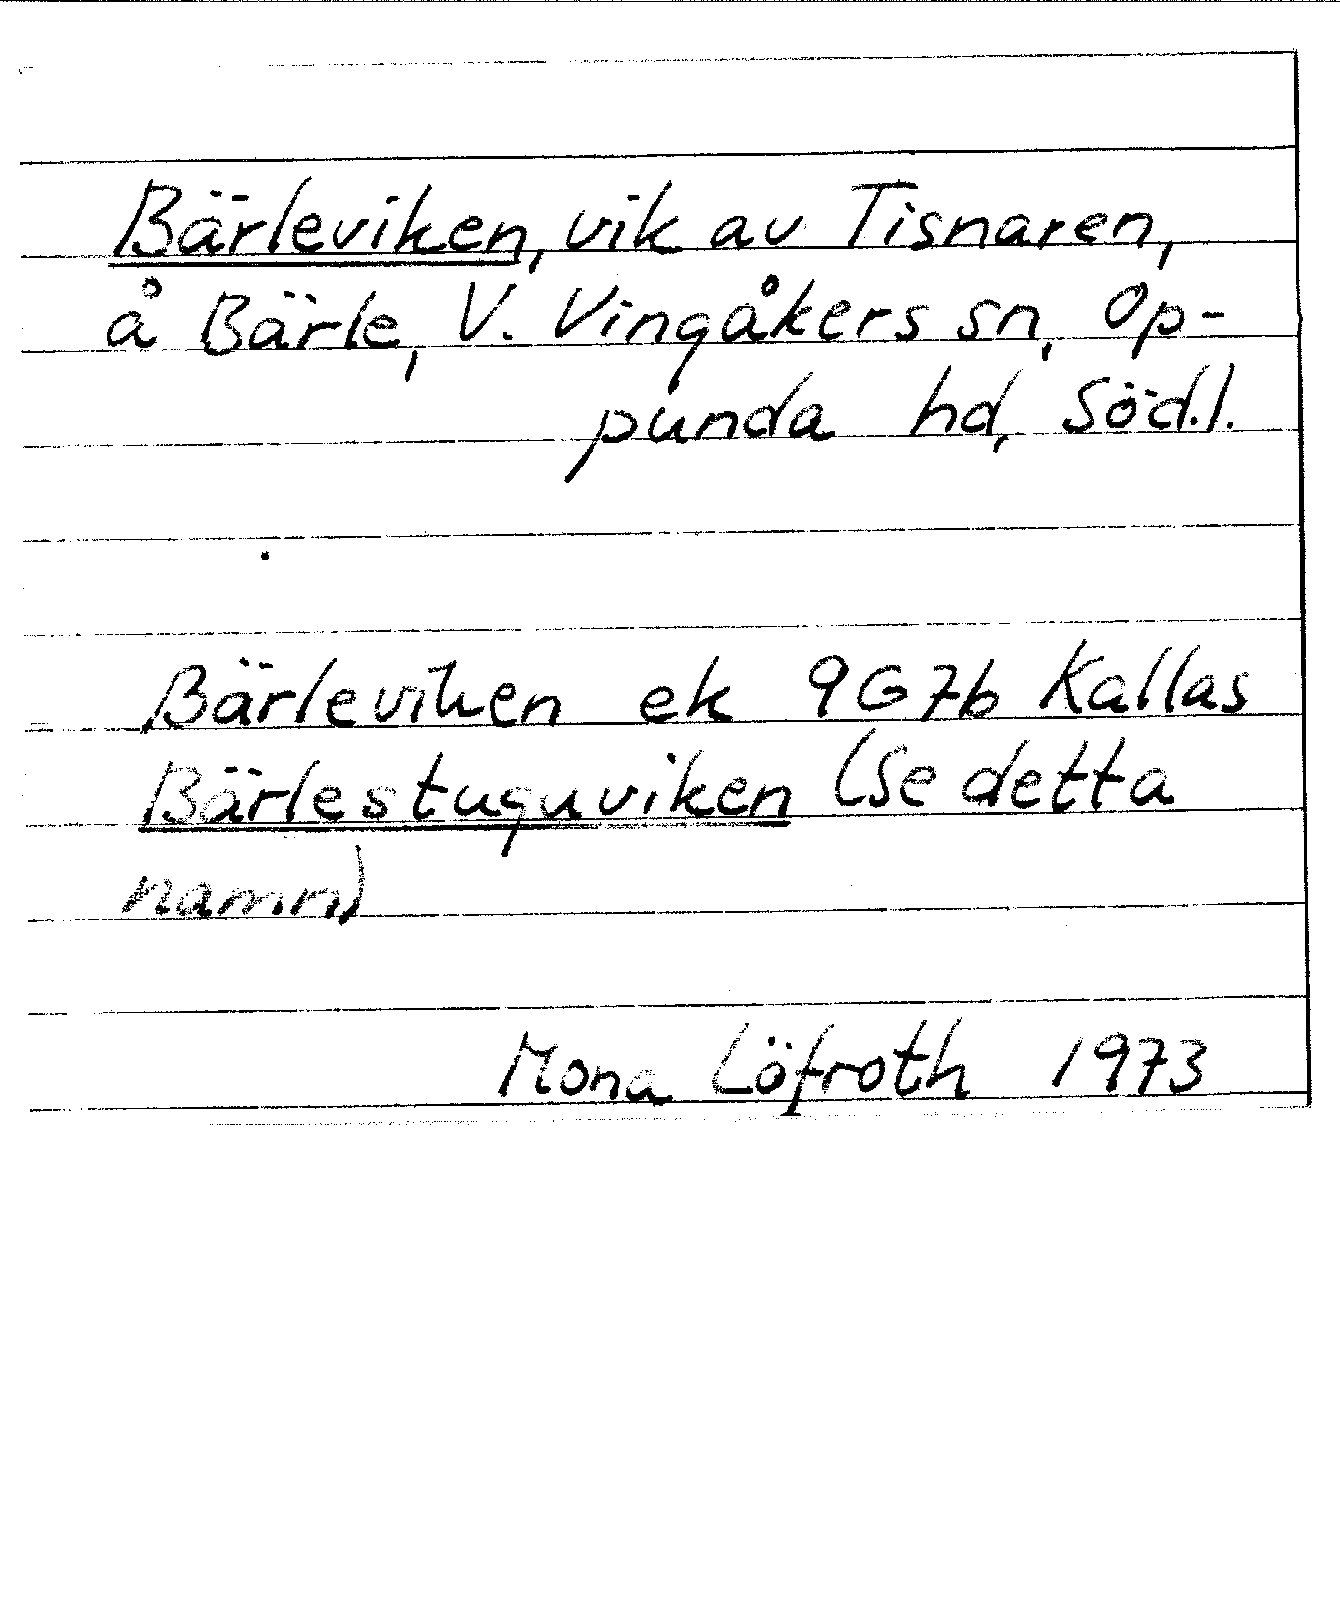 Bärleviken, vik av Tisnaren,
å Bärle, V. Vingåkers sn, Op-
punda hd, Söd.l.
Bärleviken ek 9G7b Kallas
Bärlestuguviken (Se detta
namn)
Mona Löfroth 1973